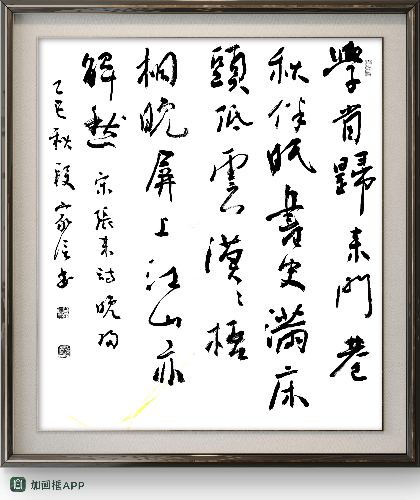 學省歸來門巷
秋伴眠書史滿床
頭低雲漠々梧
桐晚屏上江山亦
解愁 宋張耒詩晚歸
乙巳秋段家书
加画框APP